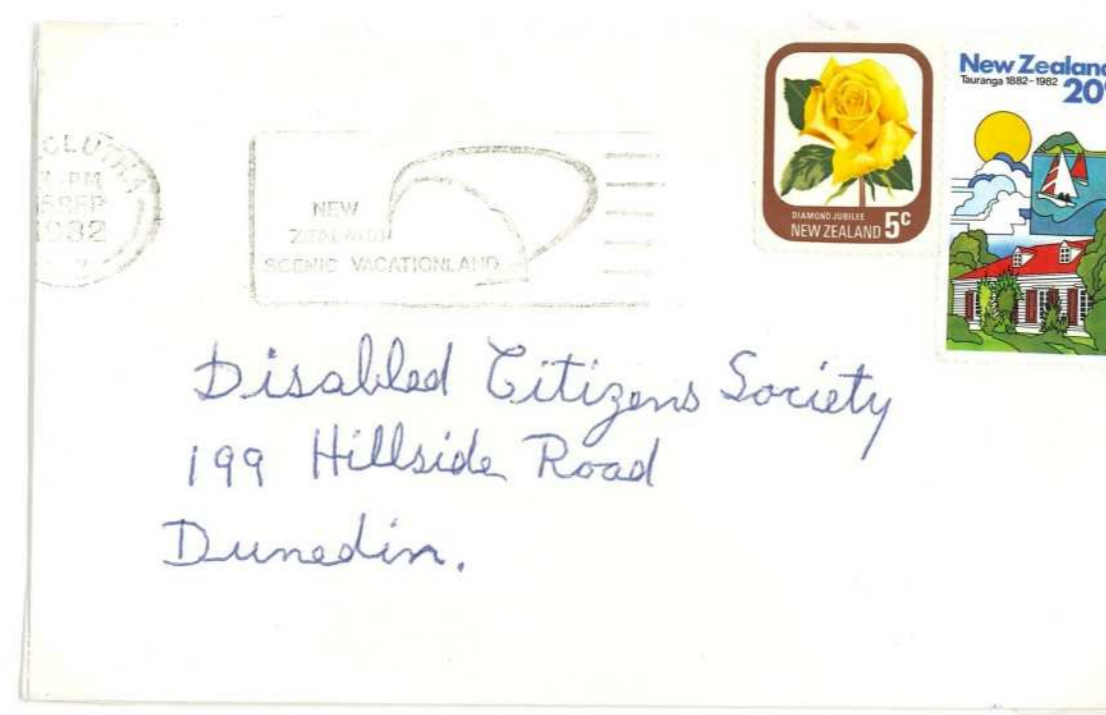 CLUTHA
-PM
SEP
1982
NEW
ZEALAND
SCENIC VACATIONLAND
DIAMOND JUBILEE
NEW ZEALAND 5c
New Zealand
Tauranga 1882-1982
20c
Disabled Citizens Society
199 Hillside Road
Dunedin.